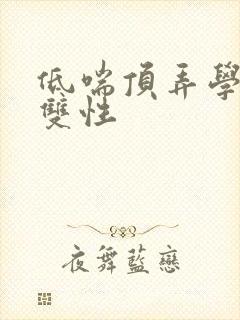 低喘頂弄學
雙性
夜舞藍戀